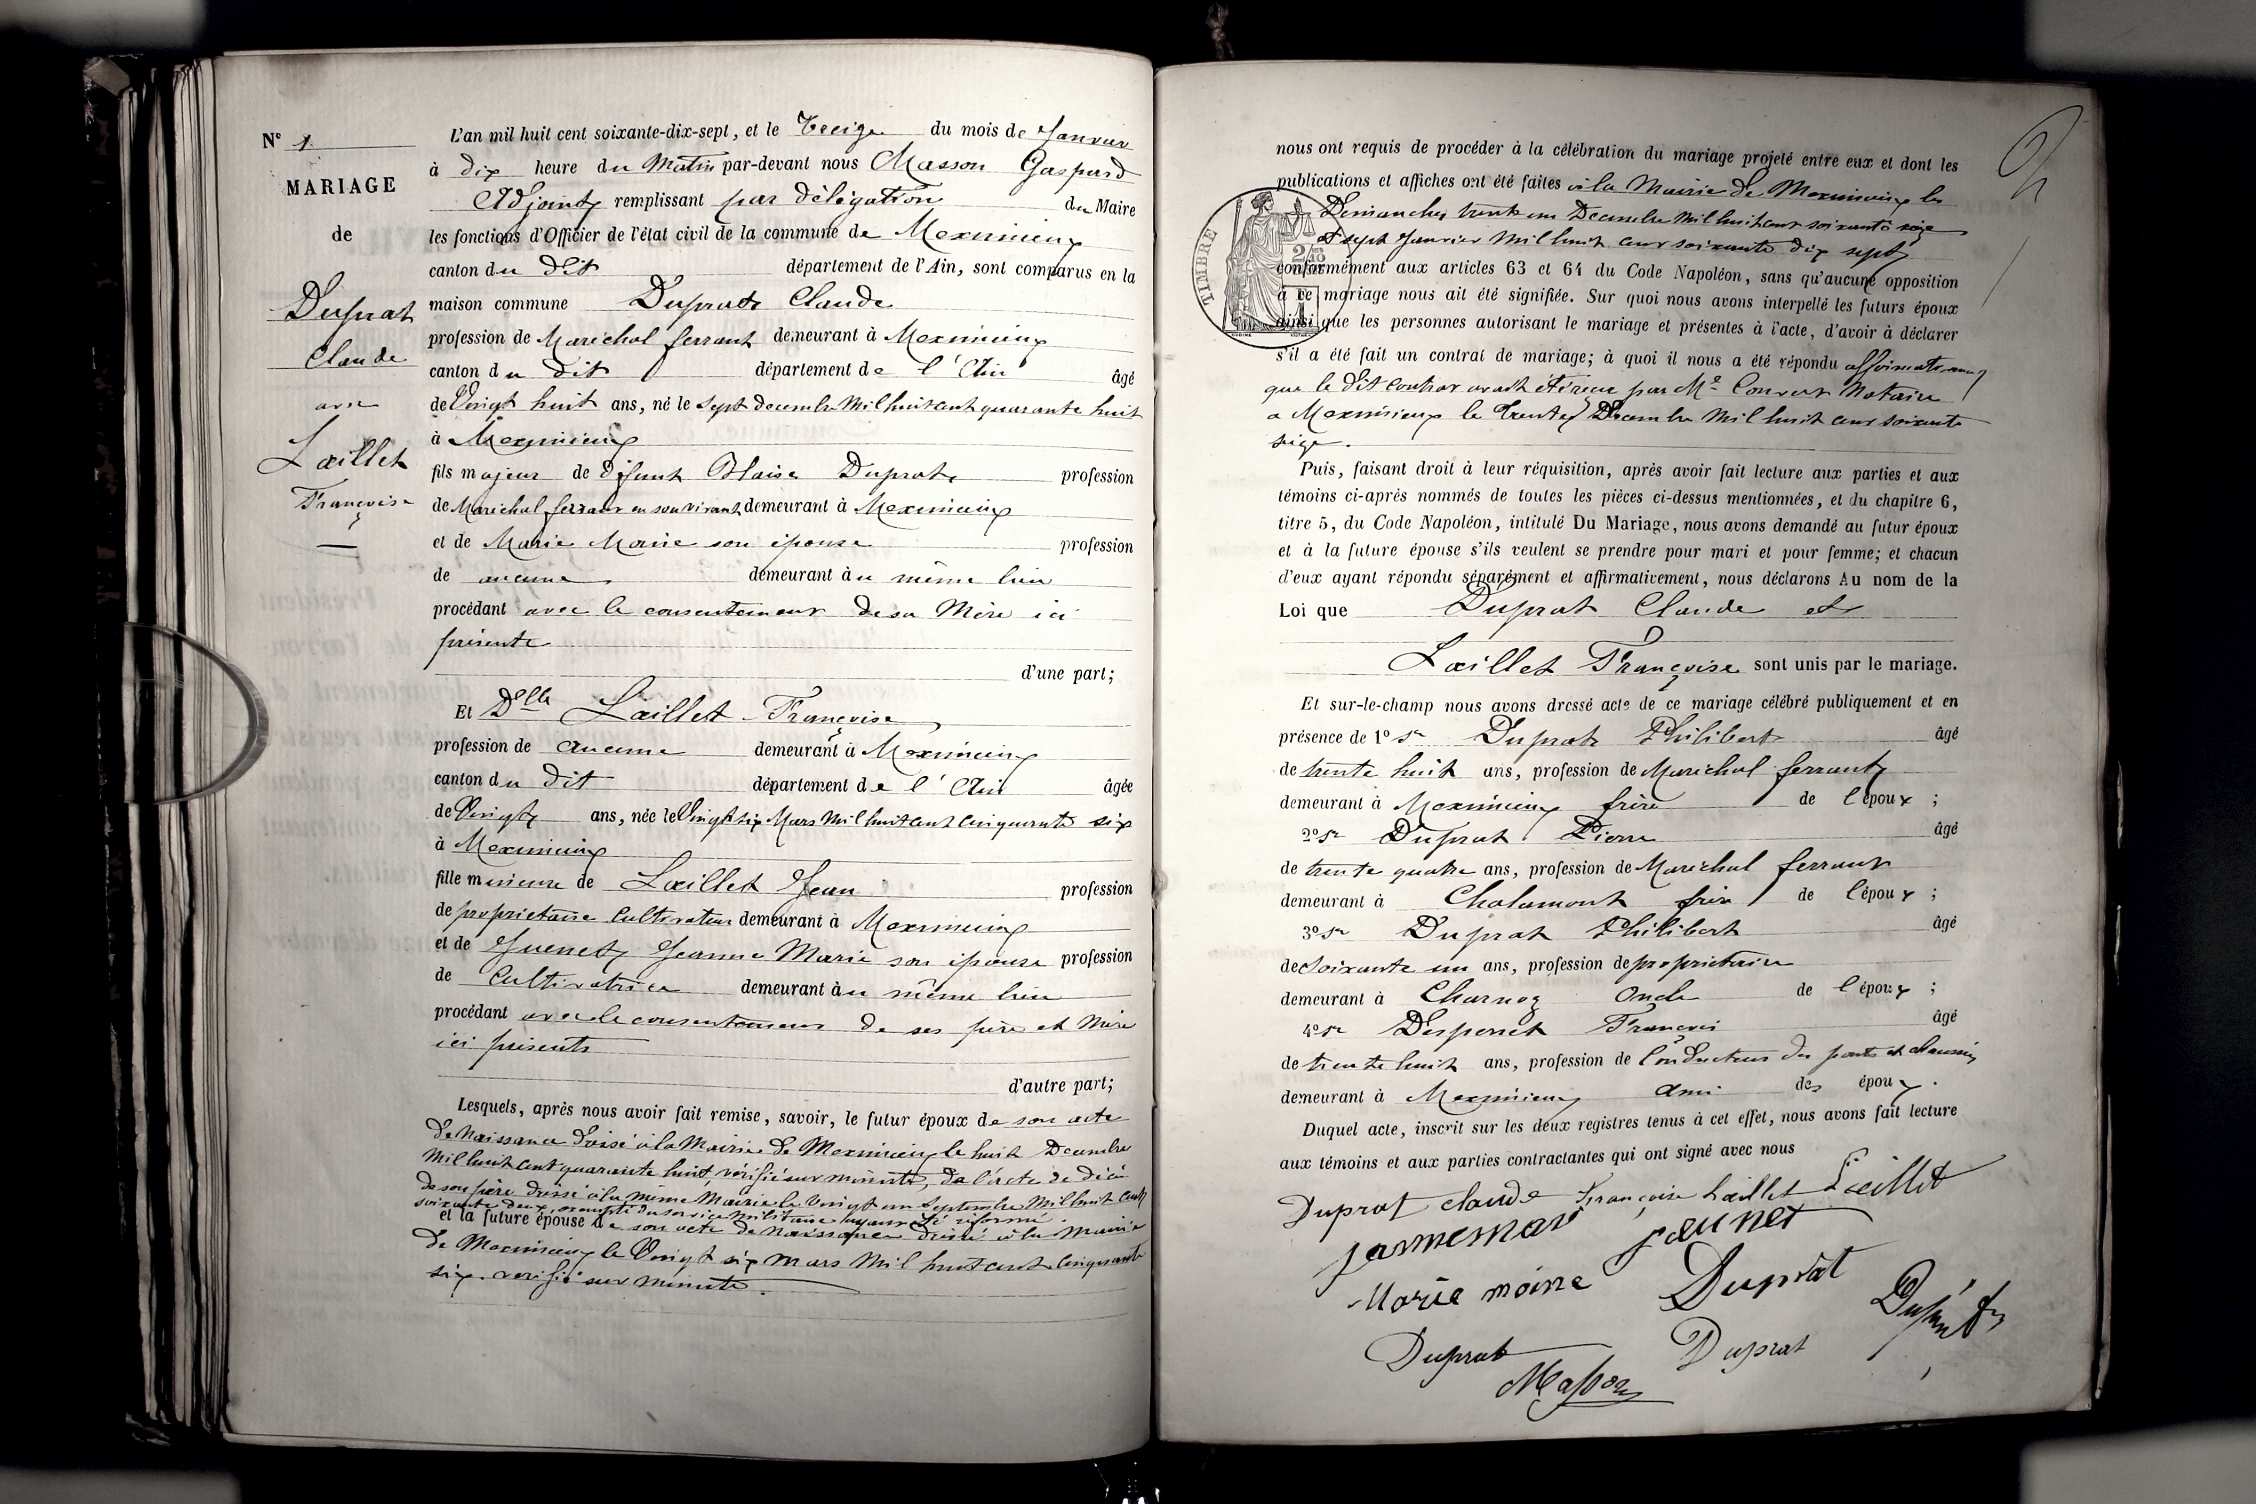 N° 1
MARIAGE
de
Duprat
Claude
avec
Lœillet
Françoise
L'an mil huit cent soixante-dix-sept, et le Treize du mois de Janvier
à dix heure du Matin par-devant nous Masson Gaspard
Adjoint remplissant par délégation du Maire
les fonctions d'Officier de l'état civil de la commune de Meximieux
canton du dit département de l'Ain, sont comparus en la
maison commune Duprat Claude
profession de Maréchal ferrant demeurant à Meximieux
canton du dit département de l'Ain âgé
de Vingt huit ans, né le sept decembre Mil huit cent quarante huit
à Meximieux
fils majeur de défunt Blaise Duprat profession
de Maréchal ferrant en son vivant demeurant à Meximieux
et de Marie Moine son épouse profession
de aucune demeurant au même lieu
procédant avec le consentement de sa Mère ici
présente
d'une part;
Et Dlle Lœillet Françoise
profession de aucune demeurant à Meximieux
canton du dit département de l'Ain âgée
de Vingt ans, née le Vingt six Mars Mil huit cent cinquante six
à Meximieux
fille mineure de Lœillet Jean profession
de propriétaire cultivateur demeurant à Meximieux
et de Jeanne Marie son épouse profession
de Cultivatrice demeurant au même lieu
procédant avec le consentement de ses père et Mère
ici présents
d'autre part;
Lesquels, après nous avoir fait remise, savoir, le futur époux de son acte
de Naissance dressé à la Mairie de Meximieux le huit Decembre
Mil huit cent quarante huit, vérifié sur minute, de l'acte de décès
de son père dressé à la même Mairie le Vingt un Septembre Mil huit cent
soixante deux, exempté du service militaire ayant été réformé.
et la future épouse de son acte de Naissance dressé à la Mairie
de Meximieux le Vingt six mars Mil huit cent cinquante
six. vérifié sur minute.
nous ont requis de procéder à la célébration du mariage projeté entre eux et dont les
publications et affiches ont été faites à la Mairie de Meximieux les
Dimanches trente un Decembre Mil huit cent soixante seize
et sept Janvier Mil huit cent soixante dix sept
TIMBRE
conformément aux articles 63 et 64 du Code Napoléon, sans qu'aucune opposition
à ce mariage nous ait été signifiée. Sur quoi nous avons interpellé les futurs époux
ainsi que les personnes autorisant le mariage et présentes à l'acte, d'avoir à déclarer
s'il a été fait un contrat de mariage; à quoi il nous a été répondu affirmativement
que le dit contrat avait été reçu par Me Convert Notaire
a Meximieux le trente Decembre Mil huit cent soixante
seize.
Puis, faisant droit à leur réquisition, après avoir fait lecture aux parties et aux
témoins ci-après nommés de toutes les pièces ci-dessus mentionnées, et du chapitre 6,
titre 5, du Code Napoléon, intitulé Du Mariage, nous avons demandé au futur époux
et à la future épouse s'ils veulent se prendre pour mari et pour femme; et chacun
d'eux ayant répondu séparément et affirmativement, nous déclarons Au nom de la
Loi que Duprat Claude et
Lœillet Françoise sont unis par le mariage.
Et sur-le-champ nous avons dressé acte de ce mariage célébré publiquement et en
présence de 1° Sr Duprat Philibert âgé
de trente huit ans, profession de Maréchal ferrant
demeurant à Meximieux frère de l'époux ;
2° Sr Duprat Pierre âgé
de trente quatre ans, profession de Maréchal ferrant
demeurant à Chalamont frère de l'époux ;
3° Sr Duprat Philibert âgé
de soixante un ans, profession de propriétaire
demeurant à Charnoz Oncle de l'époux ;
4° Sr Desperret François âgé
de trente huit ans, profession de Conducteur des ponts et chaussées
demeurant à Meximieux ami des époux.
Duquel acte, inscrit sur les deux registres tenus à cet effet, nous avons fait lecture
aux témoins et aux parties contractantes qui ont signé avec nous
Duprat claude françoise Lœillet Lœillet
Marie moine Duprat
Duprat Duprat
Masson